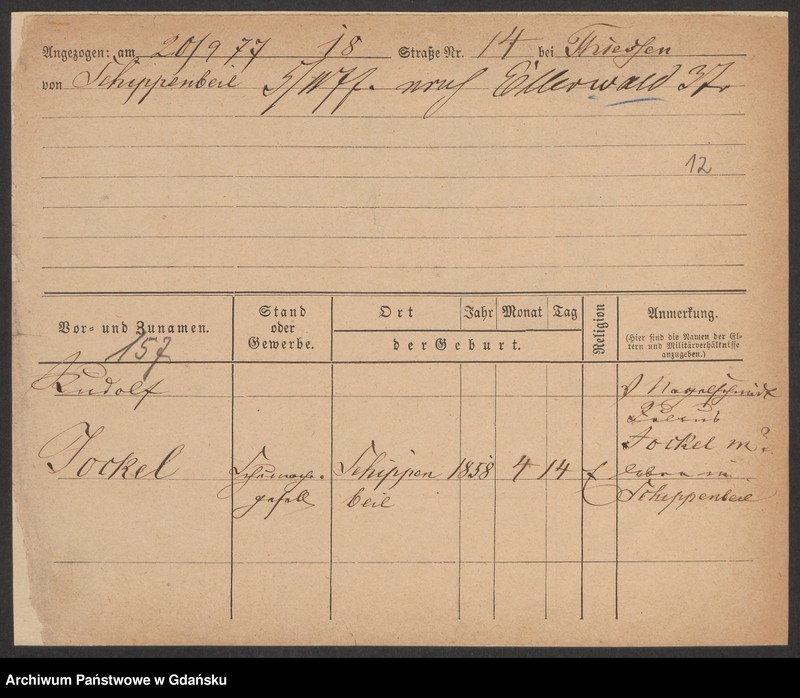 Angezogen: am 20/9 77 18 Straße Nr. 14 bei Thiessen
von Schippenbeil 5/10 77. nach Ellerwald 3Tr.
12
Vor- und Zunamen.
157
Stand
oder
Gewerbe.
Ort Jahr Monat Tag
der Geburt.
Religion
Anmerkung.
(Hier sind die Namen der El-
tern und Militärverhältnisse
anzugeben.)
Rudolf
Jockel
Schumacher-
gesell
Schippen
beil
1858 4 14
V Nagelschmidt
Julius
Jockel
leben in
Schippenbeil
Archiwum Państwowe w Gdańsku